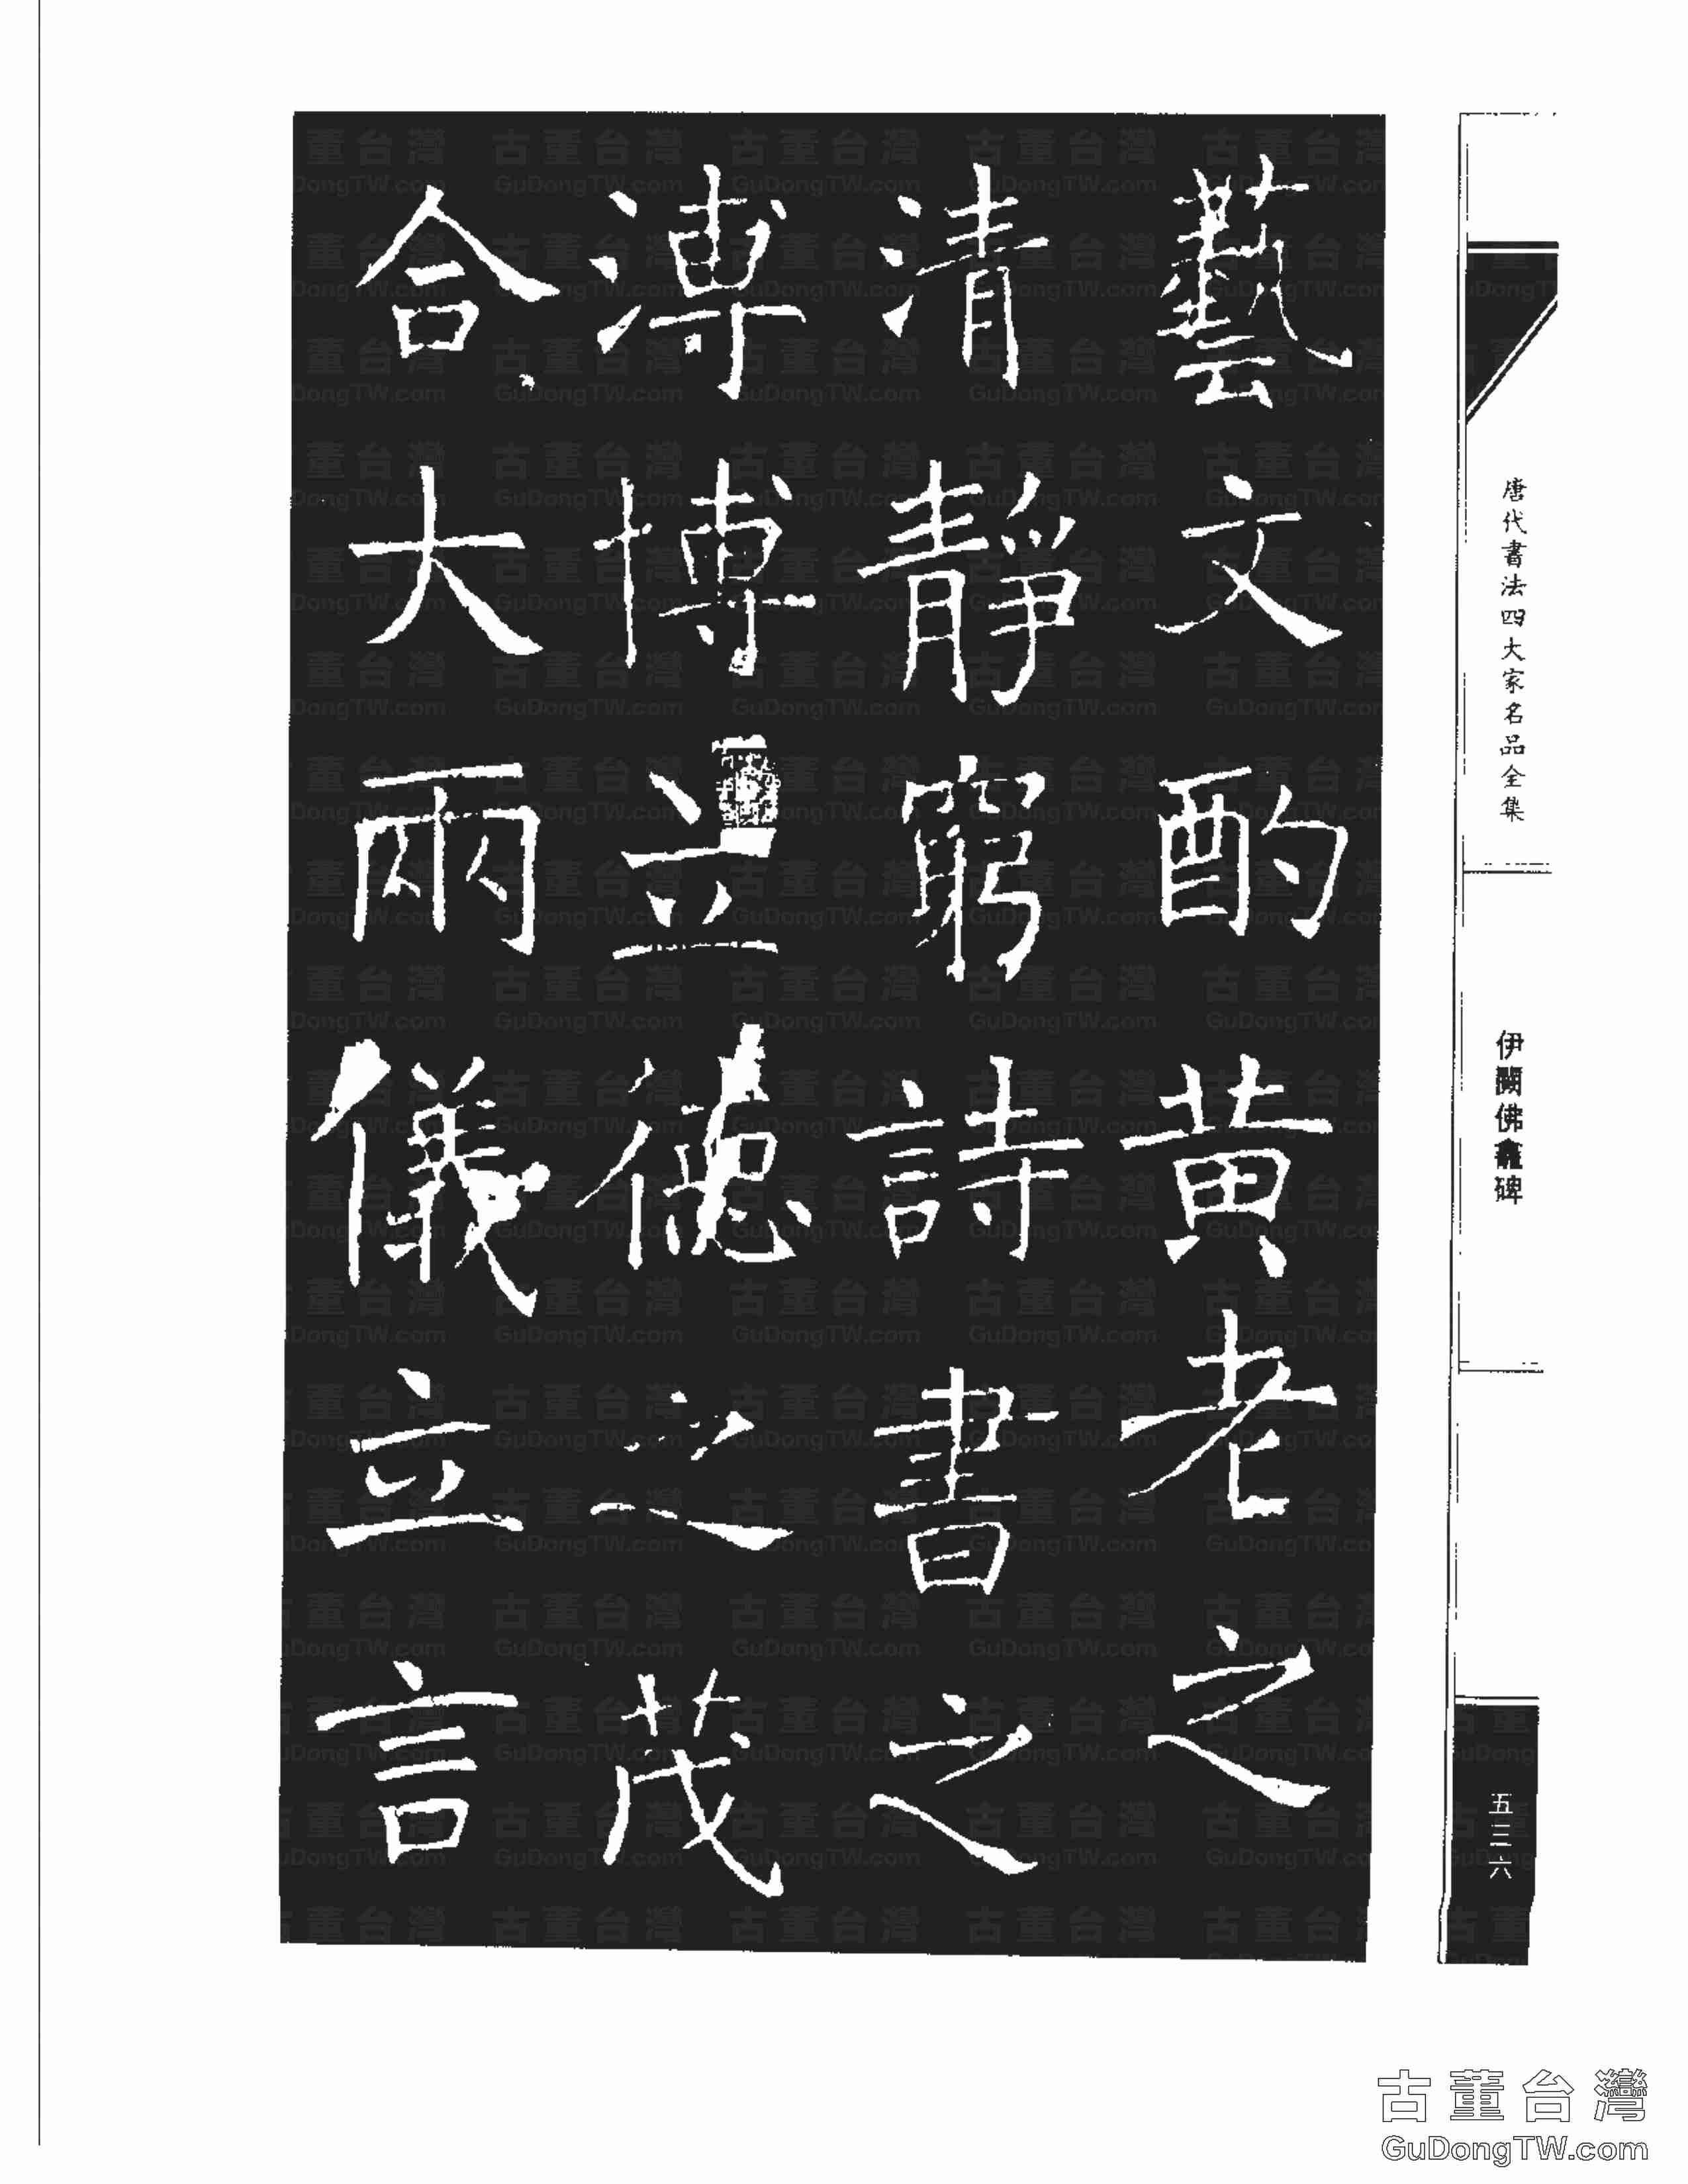 藝文酌黄老之
清靜窮詩書之
溥博立德之茂
合大兩儀立言
唐代書法四大家名品全集
伊闕佛龕碑
五三六
古董台灣
GuDongTW.com